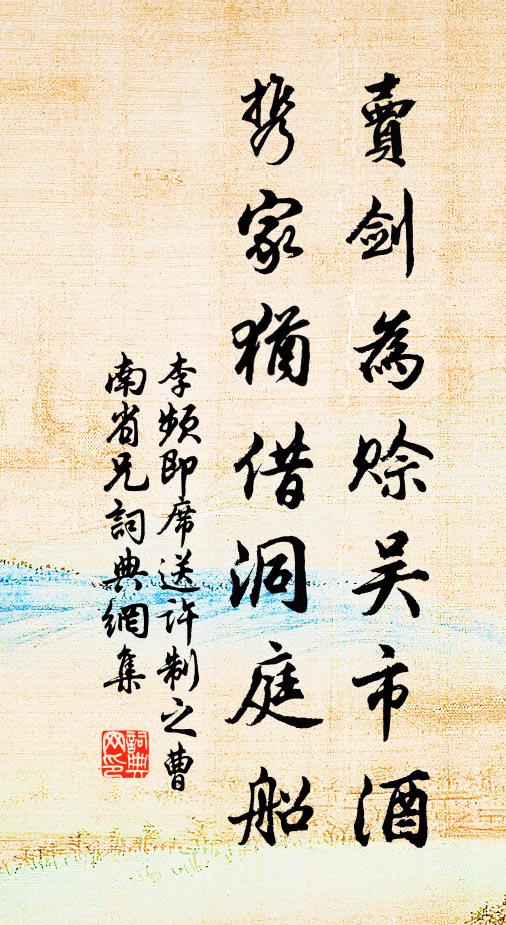 賣劍為賒吴市酒
携家猶借洞庭船
李頻即席送許制之曹
南省兄詞典網集
詞典网印